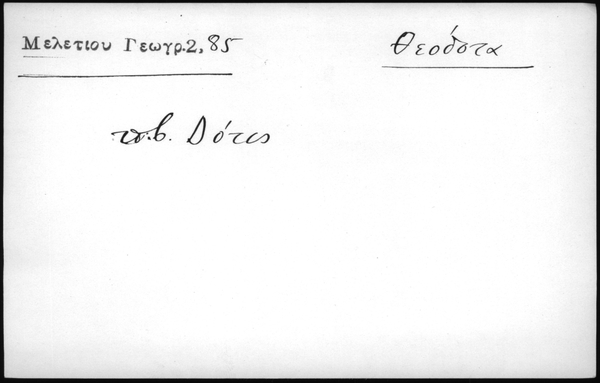 Μελετίου Γεωγρ.2, 85
Θεοδότα
β. Δότις